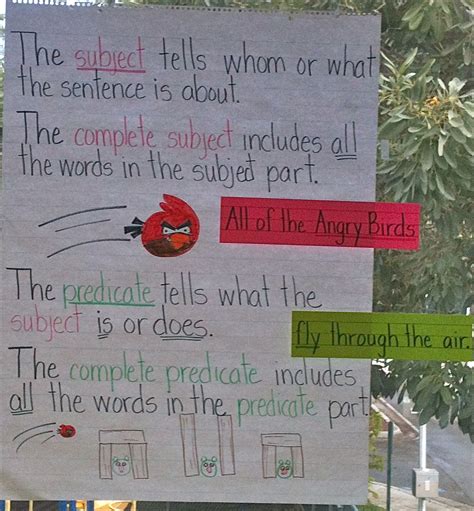 The subject tells whom or what
the sentence is about.
The complete subject includes all
the words in the subject part.
All of the Angry Birds
The predicate tells what the
subject is or does.
fly through the air.
The complete predicate includes
all the words in the predicate part.